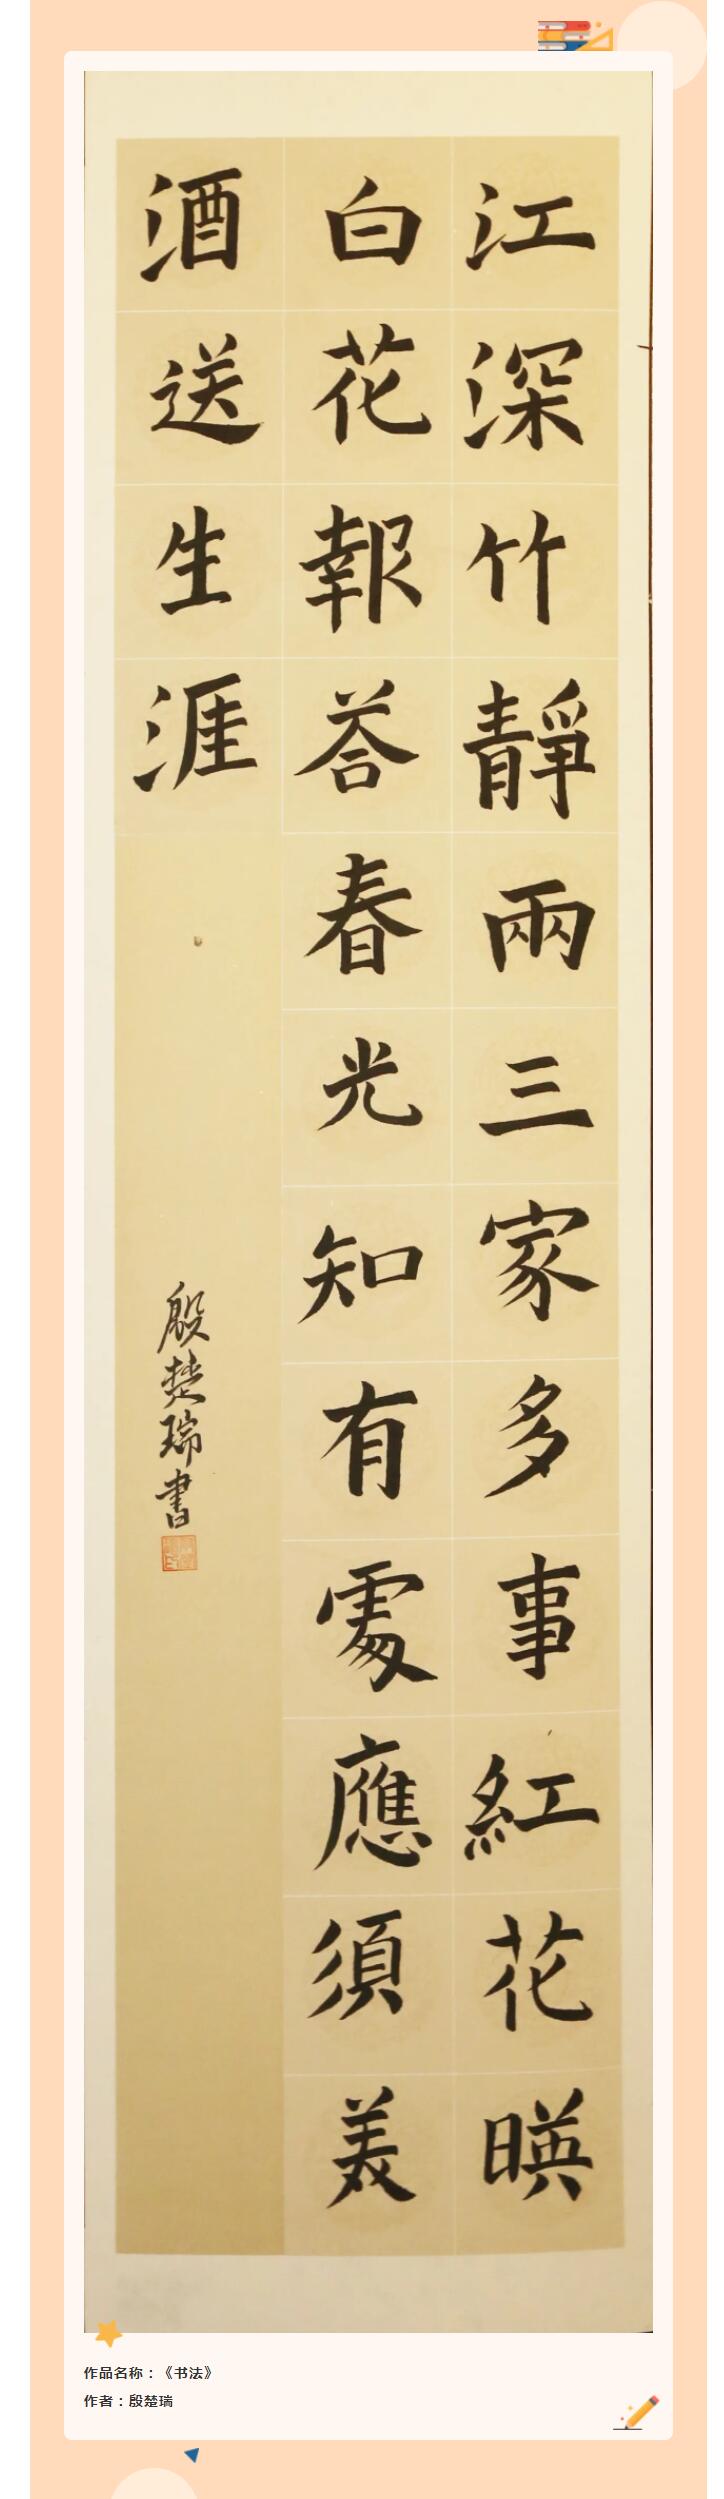 江深竹靜兩三家多事紅花暎
白花報荅春光知有處應須美
酒送生涯
殷楚瑞書
作品名称：《书法》
作者：殷楚瑞